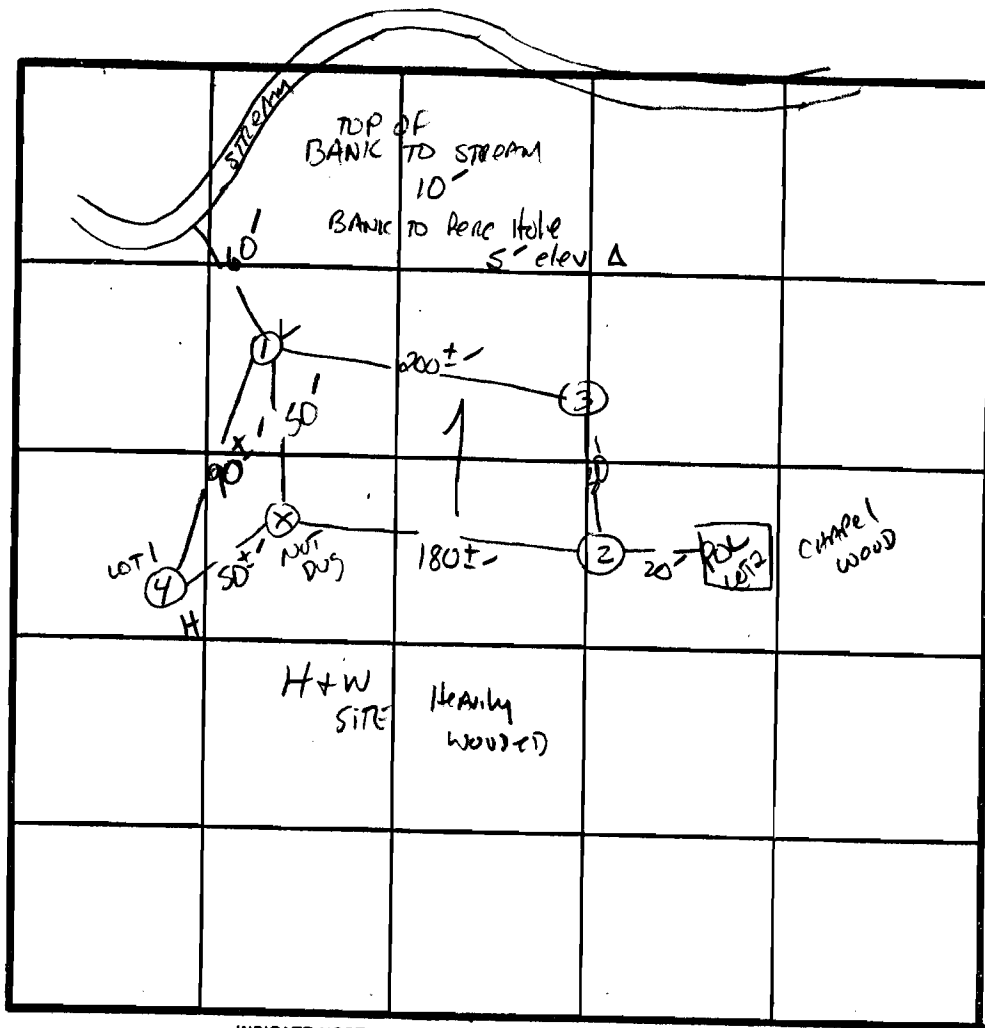 STREAM
TOP OF
BANK TO STREAM
10'
BANK TO Perc Hole
5' elev Δ
60'
1
200±'
3
50'
90±'
X
NOT
DUG
180±'
2
20'
LOT 2
CHAPEL
WOOD
LOT 1
4
50±'
H
H+W
SITE
HeAvily
WOODED